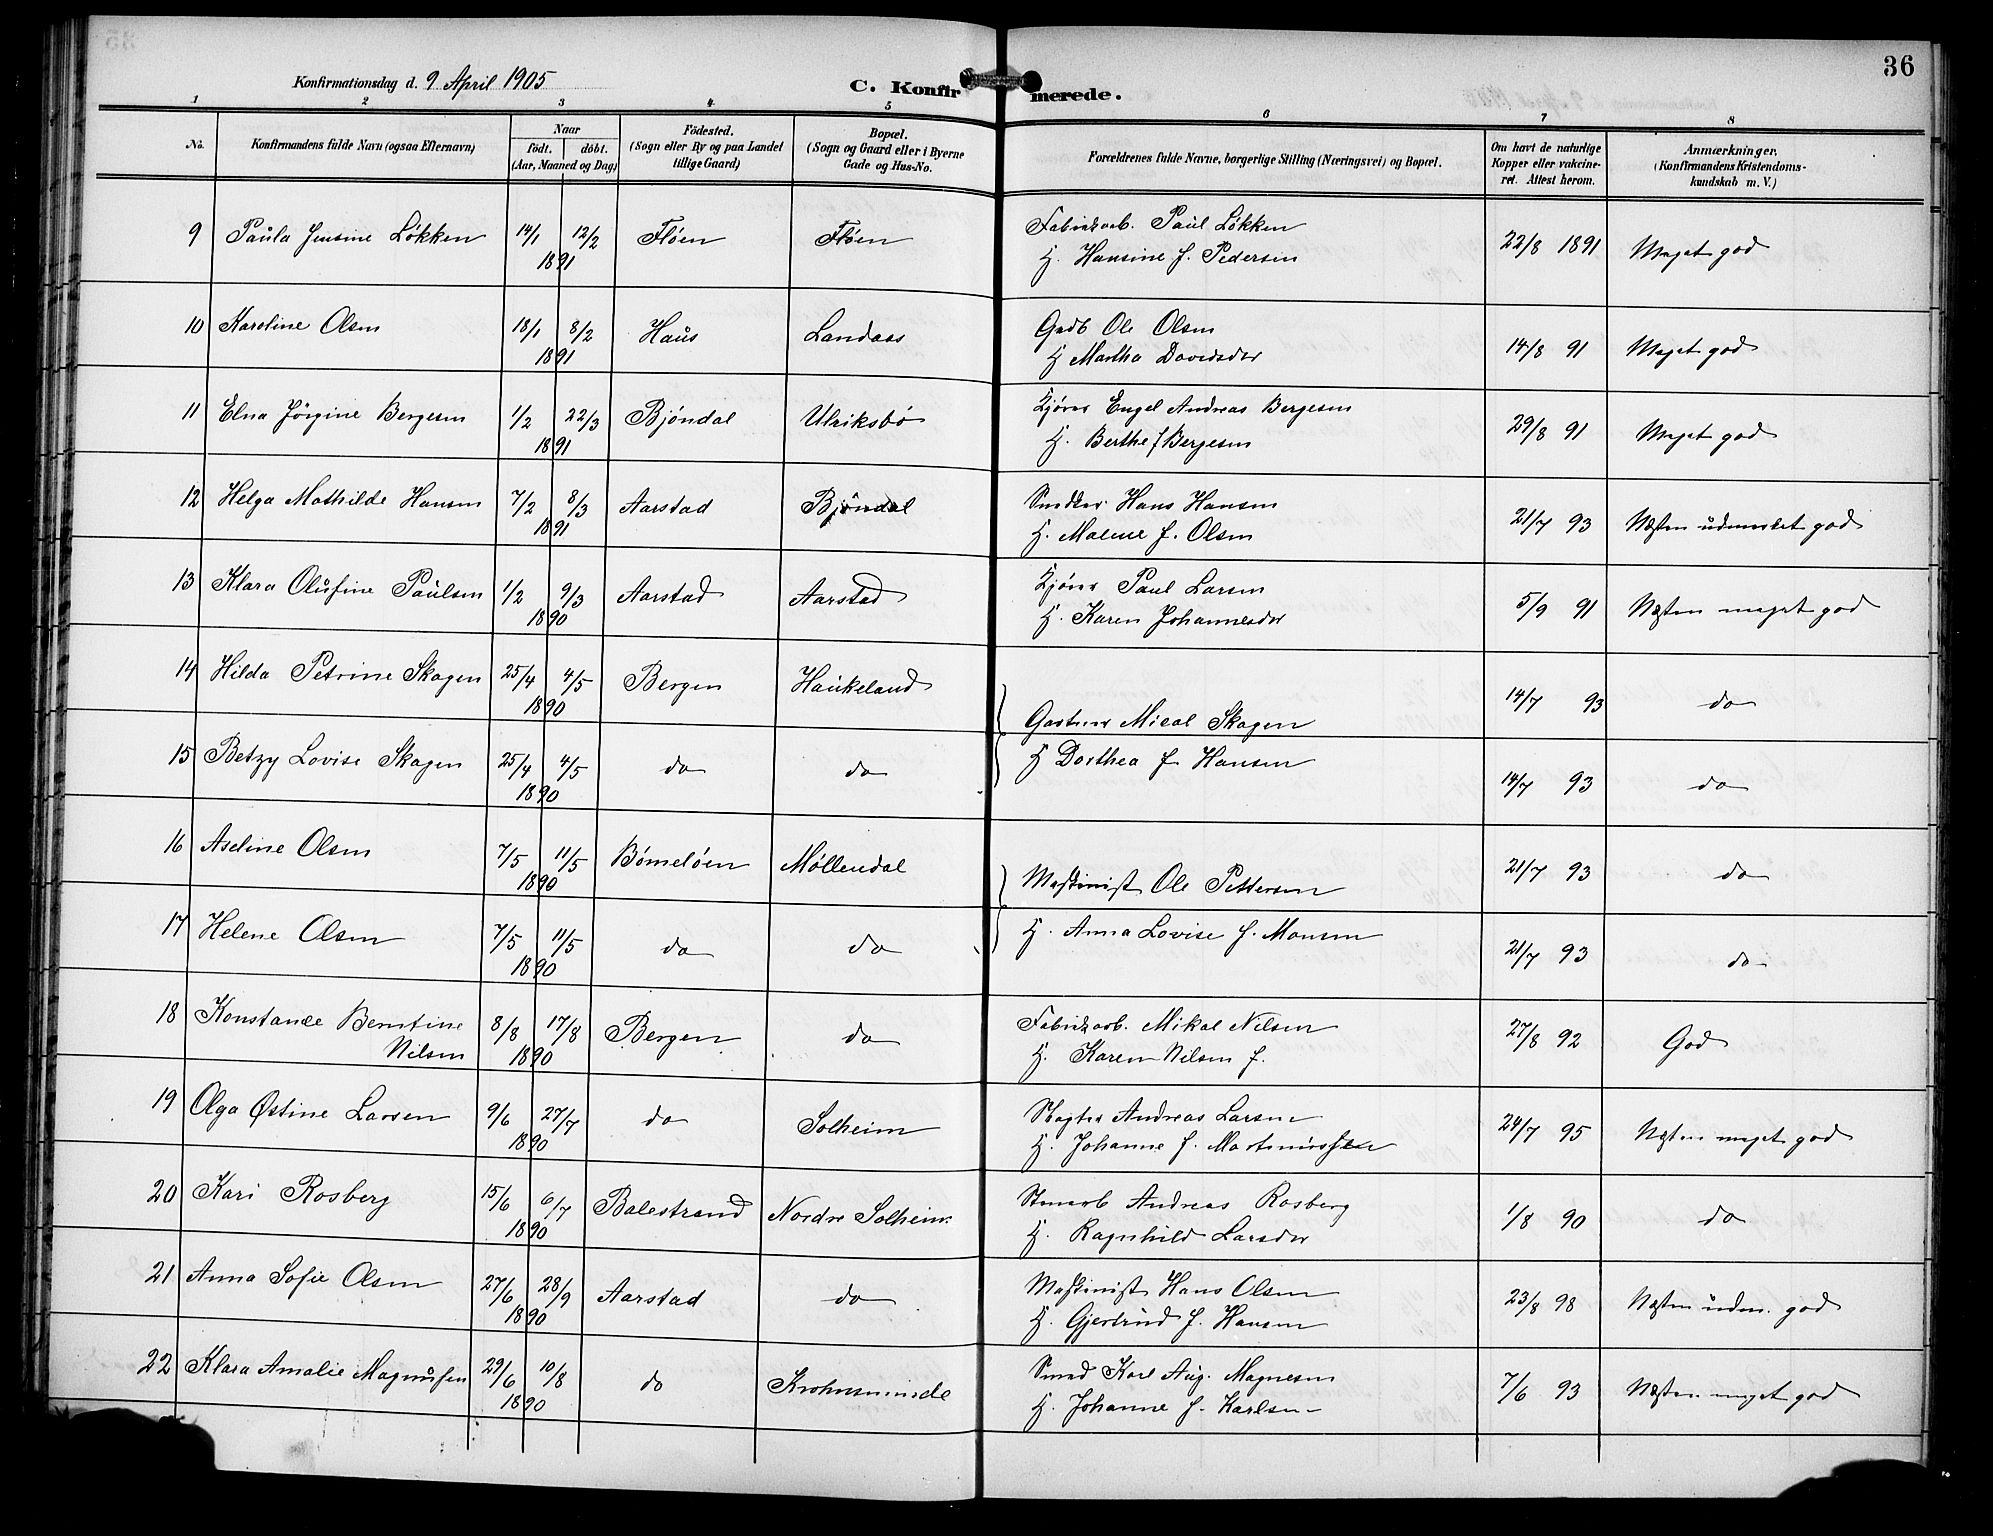 36
Konfirmationsdag d. 9 April 1905
C. Konfirmerede.
1 2 3 4 5 6 7 8
No. Konfirmandens fulde Navn (ogsaa Efternavn) Naar födt. döbt. (Aar, Maaned og Dag) Födested. (Sogn eller By og paa Landet tillige Gaard) Bopæl. (Sogn og Gaard eller i Byerne Gade og Hus-No. Forældrenes fulde Navne, borgerlige Stilling (Næringsvei) og Bopæl. Om havt de naturlige Kopper eller vakcineret. Attest herom. Anmærkninger. (Konfirmandens Kristendomskundskab m. V.)
9 Paula Jensine Løkken 14/1 12/2 1891 Fløen Fløen Fabrikarb. Paul Løkken
H. Hansine f. Pedersen 22/8 1891 Meget god
10 Karoline Olsen 18/1 8/2 1891 Haus Landaas Gadb Ole Olsen
H Martha Davidsdtr 14/8 91 Meget god
11 Elna Jörgine Bergesen 1/2 22/3 1891 Bjöndal Ulriksbö Kjörer Engel Andreas Bergesen
H. Berthe f Bergesen 29/8 91 Meget god
12 Helga Mathilde Hansen 7/2 8/3 1891 Aarstad Bjöndal Snedker Hans Hansen
H. Malene f. Olsen 21/7 93 Næsten udmerket god
13 Klara Olufine Paulsen 1/2 9/3 1890 Aarstad Aarstad Kjörer Paul Larsen
H. Karen Johannesdtr 5/9 91 Næsten meget god
14 Hilda Petrine Skagen 25/4 4/5 1890 Bergen Haukeland 14/7 93 do
Gartner Mical Skagen
15 Betzy Lovise Skagen 25/4 4/5 1890 do do H Dorthea f Hansen 14/7 93 do
16 Aseline Olsen 7/5 11/5 1890 Bömelöen Møllendal Maskinist Ole Pettersen 21/7 93 do
17 Helene Olsen 7/5 11/5 1890 do do H. Anna Lovise f. Monsen 21/7 93 do
18 Konstance Berntine
Nilsen 8/8 17/8 1890 Bergen do Fabrikarb. Mikal Nilsen
H. Karen Nilsen f. 27/8 92 God
19 Olga Østine Larsen 9/6 27/7 1890 do Solheim Slagter Andreas Larsen
H. Johanne f. Martinussen 24/7 95 Næsten meget god
20 Kari Rosberg 15/6 6/7 1890 Balestrand Nordre Solheim Stenarb Andreas Rosberg
H. Ragnhild Larsdtr 1/8 90 do
21 Anna Sofie Olsen 27/6 28/9 1890 Aarstad do Maskinist Hans Olsen
H. Gjertrud f. Hansen 23/8 98 Næsten udm. god
22 Klara Amalie Magnussen 29/6 10/8 1890 do Krohnsminde Smed Karl Aug. Magnesen
H. Johanne f. Karlsen 7/6 93 Næsten meget god